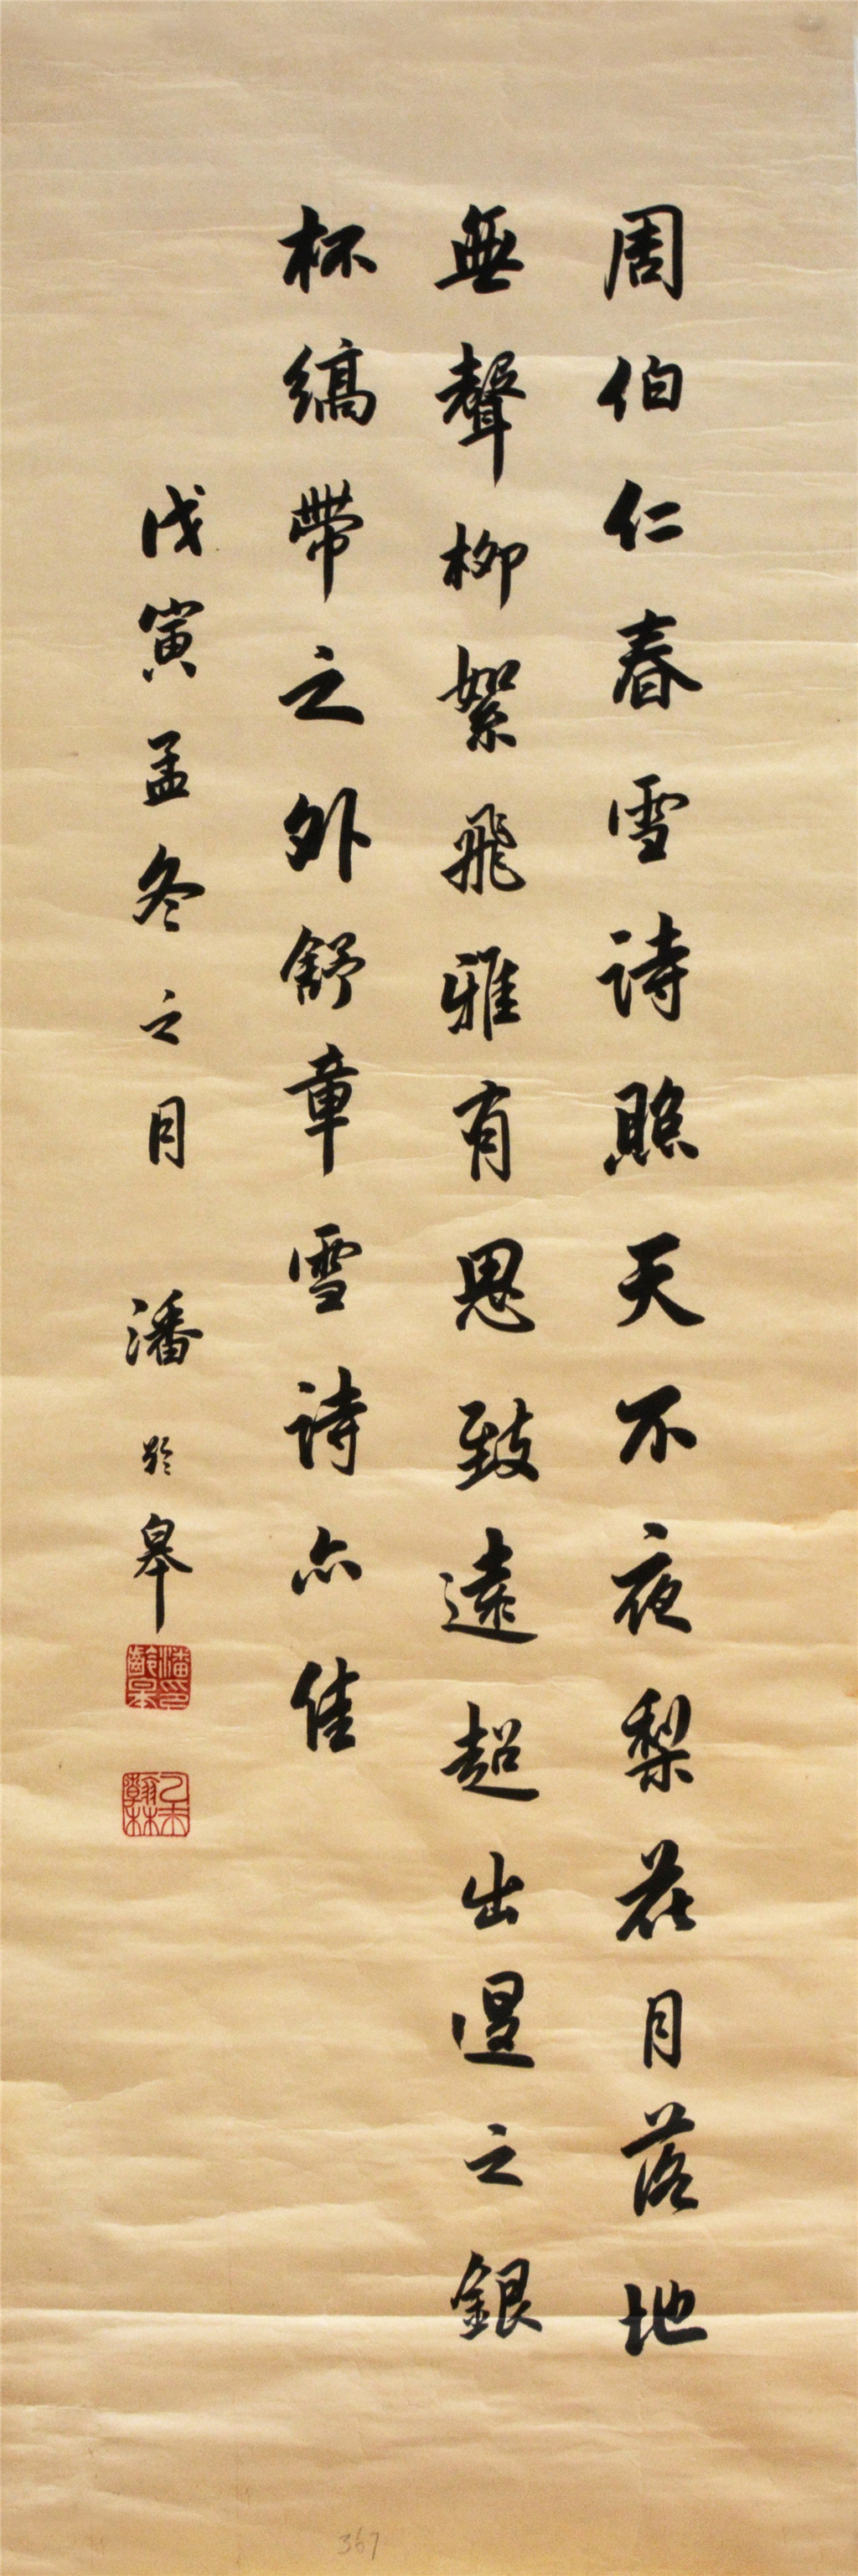 周伯仁春雪詩照天不夜梨花月落地
無聲柳絮飛雅有思致遠超出退之銀
杯縞帶之外舒章雪詩亦佳
戊寅孟冬之月 潘齡皋
潘齡皋印
乙未翰林
367